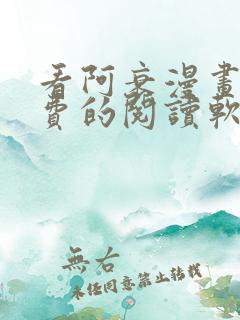 看阿衰漫畫
費的閱讀軟
無右
未經同意禁止轉載